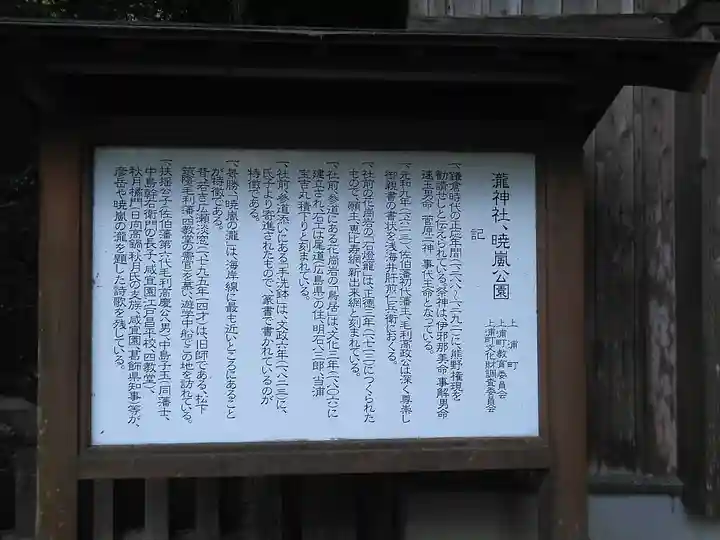 瀧神社、暁嵐公園
記
上浦町
上浦町教育委員会
上浦町文化財調査委員会
一、鎌倉時代の正応年間(一二八八〜一二九二)に、熊野権現を
勧請せしと伝えられている。祭神は、伊邪那美命、事解男命
速玉男命、菅原二神、事代主命となっている。
一、元和九年(一六二三)、佐伯藩初代藩主、毛利高政公は深く尊崇し
御親書の書状を浅海井肝煎仁兵衛におくる。
一、社前の花崗岩の「石燈籠」は、正徳三年(一七一三)につくられた
もので「願主、恵比寿網、新出来網と刻まれている。
一、社前、参道にある花崗岩の「鳥居」は、文化三年(一八〇六)に
建立され、石工は尾道(広島県)の住、明石八三郎、当浦
宝吉丸積下りと刻まれている。
一、社前、参道添いにある「手洗鉢」は、文政六年(一八二三)に、
氏子より寄進されたもので、篆書で書かれているのが
特徴である。
一、景勝、「暁嵐の瀧」は、海岸線に最も近いところにあること
が特徴である。
昔、若き広瀬淡窓(一七九五年(一四才)は、旧師である、松下
筑陰(毛利藩、四教堂の教官)を慕い、遊学中、船でこの地を訪れている。
一、扶揺公子(佐伯藩第六代毛利高慶公八男)中島子玉(同藩士、
中島幹右衛門の長子、咸宜園、江戸昌平校、四教堂)、
秋月橘門(日向高鍋、秋月氏の支族、咸宜園、葛飾県知事)等が、
彦岳や暁嵐の瀧を題した詩歌を残している。